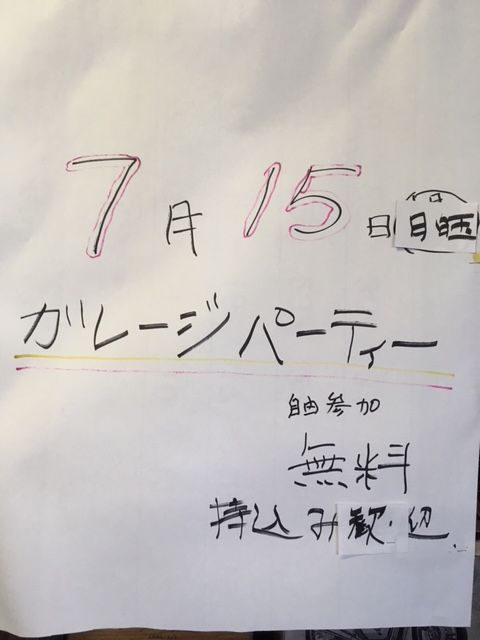 7月15日
ガレージパーティー
自由参加
無料
持込み歓迎